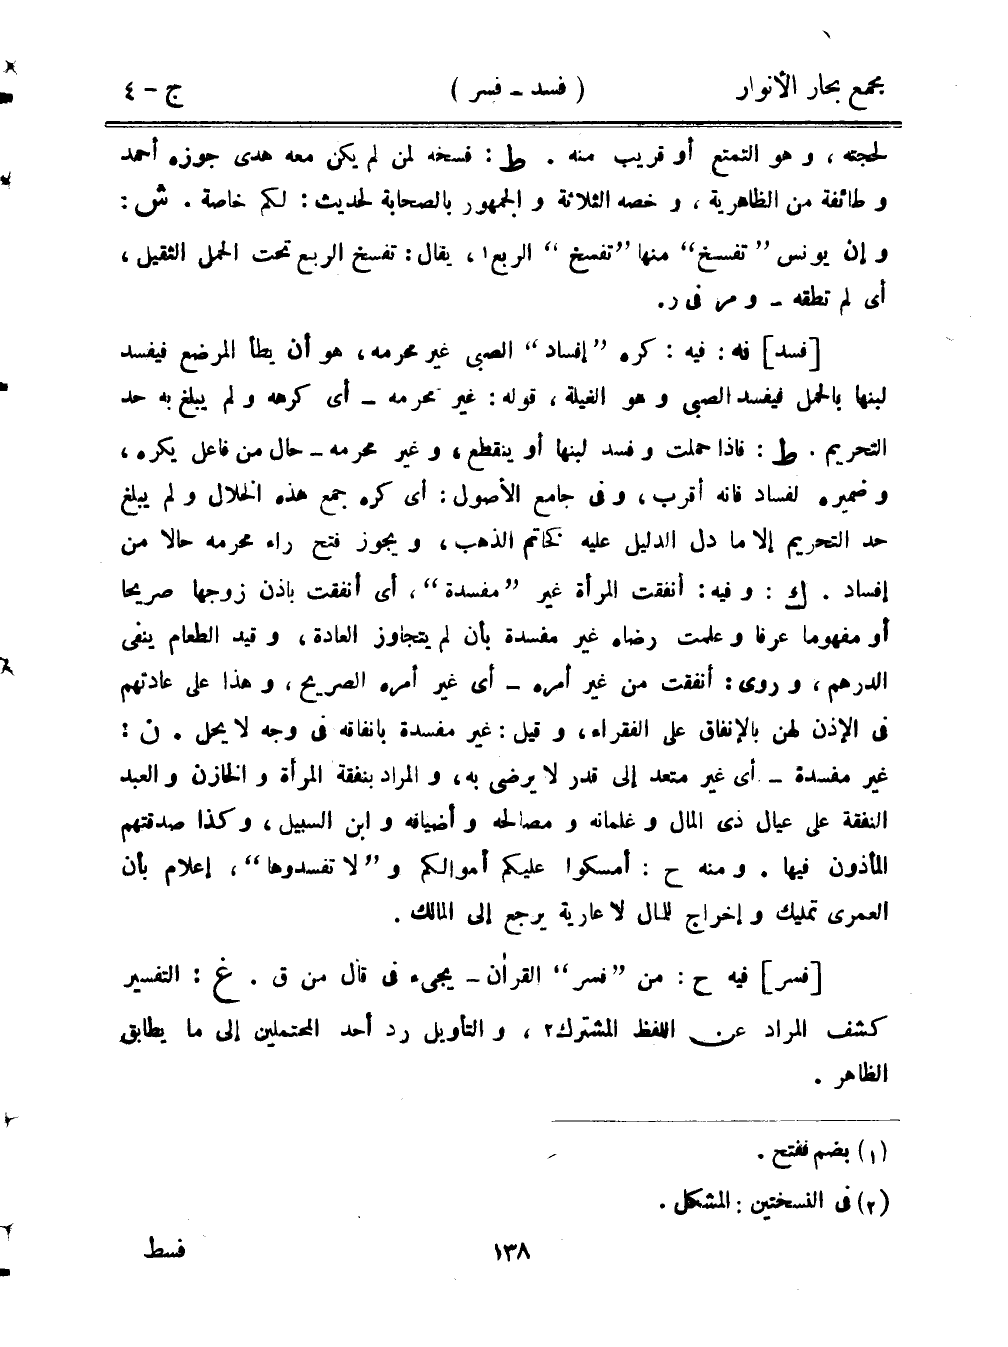 مجمع بحار الأنوار ( فسد - فسر ) ج - ٤
لحجته ، و هو التمتع أو قريب منه . ط : فسخه لمن لم يكن معه هدى جوزه أحمد
و طائفة من الظاهرية ، و خصه الثلاثة و الجمهور بالصحابة لحديث : لكم خاصة . ش :
و إن يونس ”تفسخ“ منها ”تفسخ“ الربع١ ، يقال : تفسخ الربع تحت الحمل الثقيل ،
أى لم تطقه - و مر فى ر.
[فسد] فه : فيه : كره ”إفساد“ الصبى غير محرمه ، هو أن يطأ المرضع فيفسد
لبنها بالحمل فيفسد الصبى و هو الغيلة ، قوله : غير محرمه - أى كرهه و لم يبلغ به حد
التحريم . ط : فاذا حملت و فسد لبنها أو ينقطع ، و غير محرمه - حال من فاعل يكره ،
و ضميره لفساد فانه أقرب ، و فى جامع الأصول : أى كره جمع هذه الخلال و لم يبلغ
حد التحريم إلا ما دل الدليل عليه كخاتم الذهب ، و يجوز فتح راء محرمه حالا من
إفساد . ك : و فيه : أنفقت المرأة غير ”مفسدة“ ، أى أنفقت باذن زوجها صريحا
أو مفهوما عرفا و علمت رضاه غير مفسدة بأن لم يتجاوز العادة ، و قيد الطعام ينفى
الدرهم ، و روى : أنفقت من غير أمره - أى غير أمره الصريح ، و هذا على عادتهم
فى الإذن لهن بالإنفاق على الفقراء ، و قيل : غير مفسدة بانفاقه فى وجه لا يحل . ن :
غير مفسدة - أى غير متعد إلى قدر لا يرضى به ، و المراد بنفقة المرأة و الخازن و العبد
النفقة على عيال ذى المال و غلمانه و مصالحه و أضيافه و ابن السبيل ، و كذا صدقتهم
المأذون فيها . و منه ح : أمسكوا عليكم أموالكم و ”لا تفسدوها“ ، إعلام بأن
العمرى تمليك و إخراج للمال لا عارية يرجع إلى المالك .
[فسر] فيه ح : من ”فسر“ القرأن - يجىء فى قال من ق . غ : التفسير
كشف المراد عن اللفظ المشترك٢ ، و التأويل رد أحد المحتملين إلى ما يطابق
الظاهر .
(١) بضم ففتح .
(٢) فى النسختين : المشكل .
١٣٨ فسط